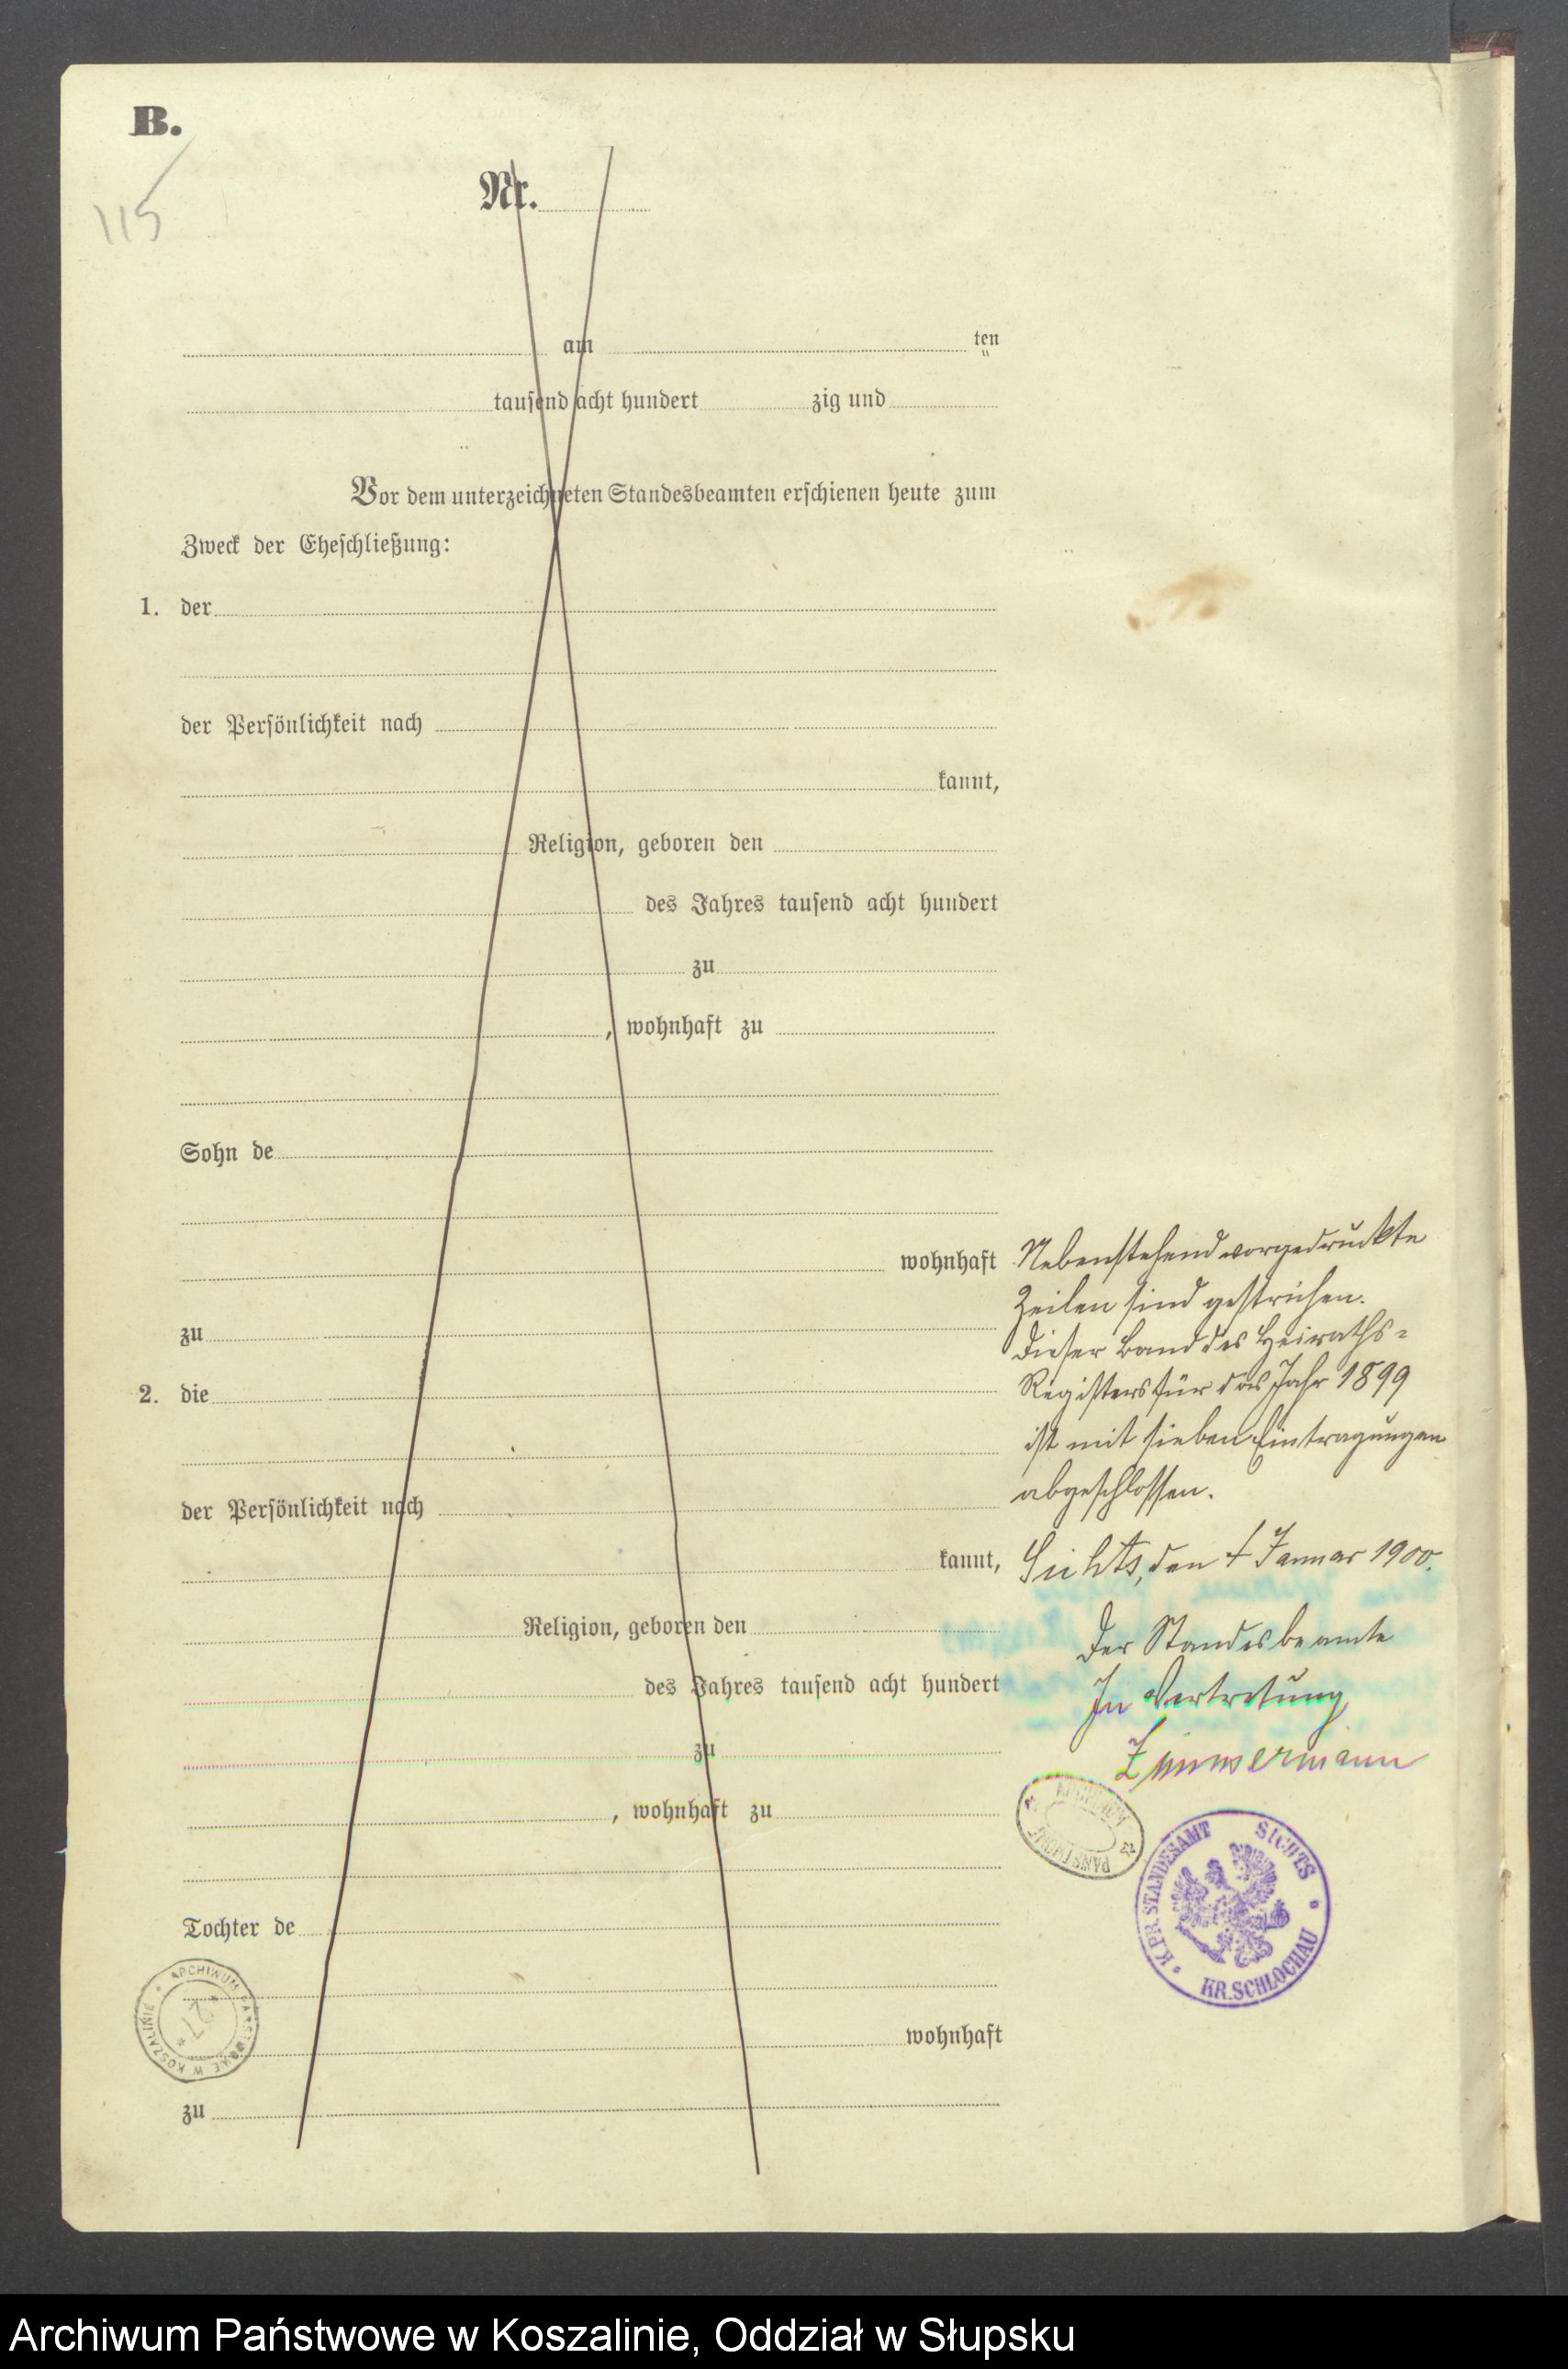 B.
115
Nr.
am ten
tausend acht hundert zig und
Vor dem unterzeichneten Standesbeamten erschienen heute zum
Zweck der Eheschließung:
1. der
der Persönlichkeit nach
kannt,
Religion, geboren den
des Jahres tausend acht hundert
zu
, wohnhaft zu
Sohn de
wohnhaft
zu
2. die
der Persönlichkeit nach
kannt,
Religion, geboren den
des Jahres tausend acht hundert
zu
, wohnhaft zu
Tochter de
wohnhaft
zu
Nebenstehend vorgedruckte
Zeilen sind gestrichen.
Dieser Band des Heiraths-
Registers für das Jahr 1899
ist mit sieben Eintragungen
abgeschlossen.
Sichts, den Januar 1900.
Der Standesbeamte
In Vertretung
Zimmermann
ARCHIWUM PAŃSTWOWE
K. PR. STANDESAMT SICHTS
KR. SCHLOCHAU
ARCHIWUM PAŃSTWOWE W KOSZALINIE
Archiwum Państwowe w Koszalinie, Oddział w Słupsku